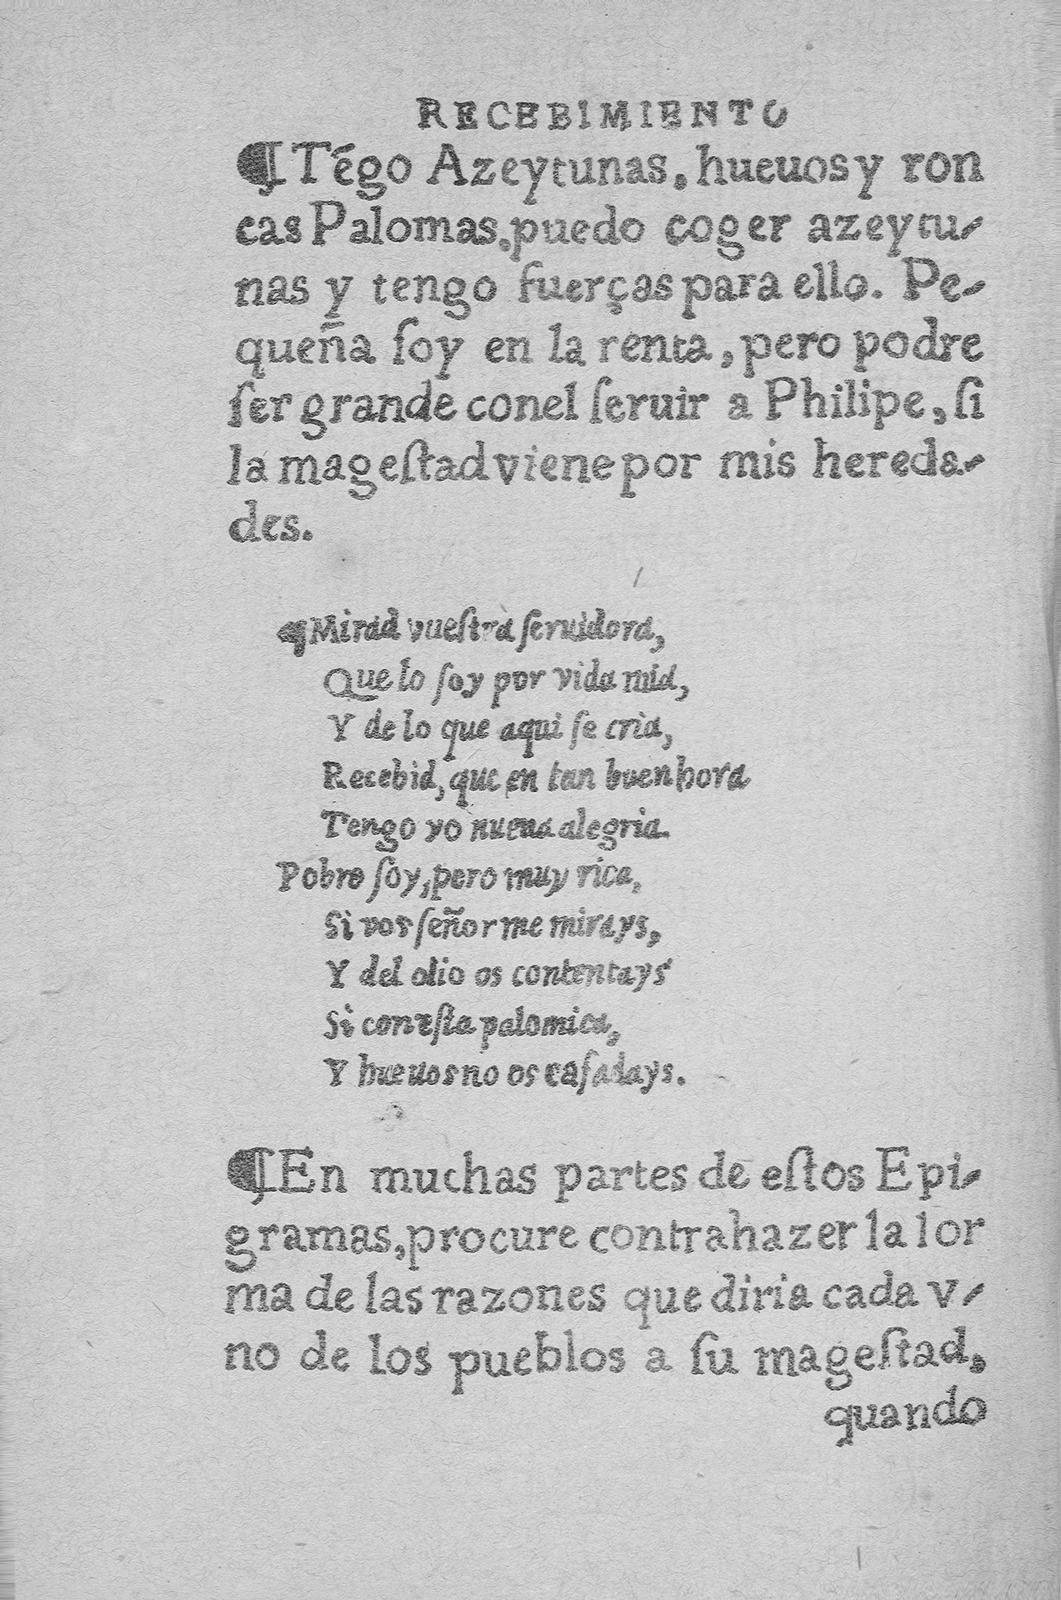 RECEBIMIENTO
¶ Tẽgo Azeytunas, hueuos y ron
cas Palomas, puedo coger azeytu-
nas y tengo fuerças para ello. Pe-
queña ſoy en la renta, pero podre
ſer grande conel ſeruir a Philipe, ſi
la mageſtad viene por mis hereda-
des.
¶ Mirad vueſtra ſeruidora,
Que lo ſoy por vida mia,
Y de lo que aqui ſe cria,
Recebid, que en tan buen hora
Tengo yo nueua alegria.
Pobre ſoy, pero muy rica,
Si vos ſeñor me mirays,
Y del olio os contentays
Si con eſta palomica,
Y hueuos no os enfadays.
¶ En muchas partes de eſtos Epi-
gramas, procure contrahazer la for
ma de las razones que diria cada v-
no de los pueblos a ſu mageſtad,
quando